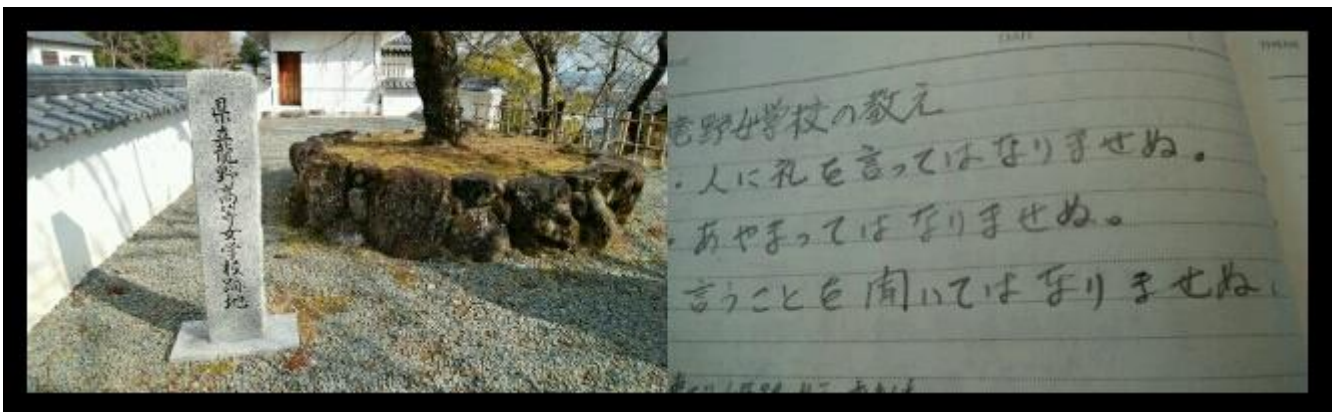 県立龍野高等女学校跡地
竜野女学校の教え
・人に礼を言ってはなりませぬ。
・あやまってはなりませぬ。
言うことを聞いてはなりませぬ